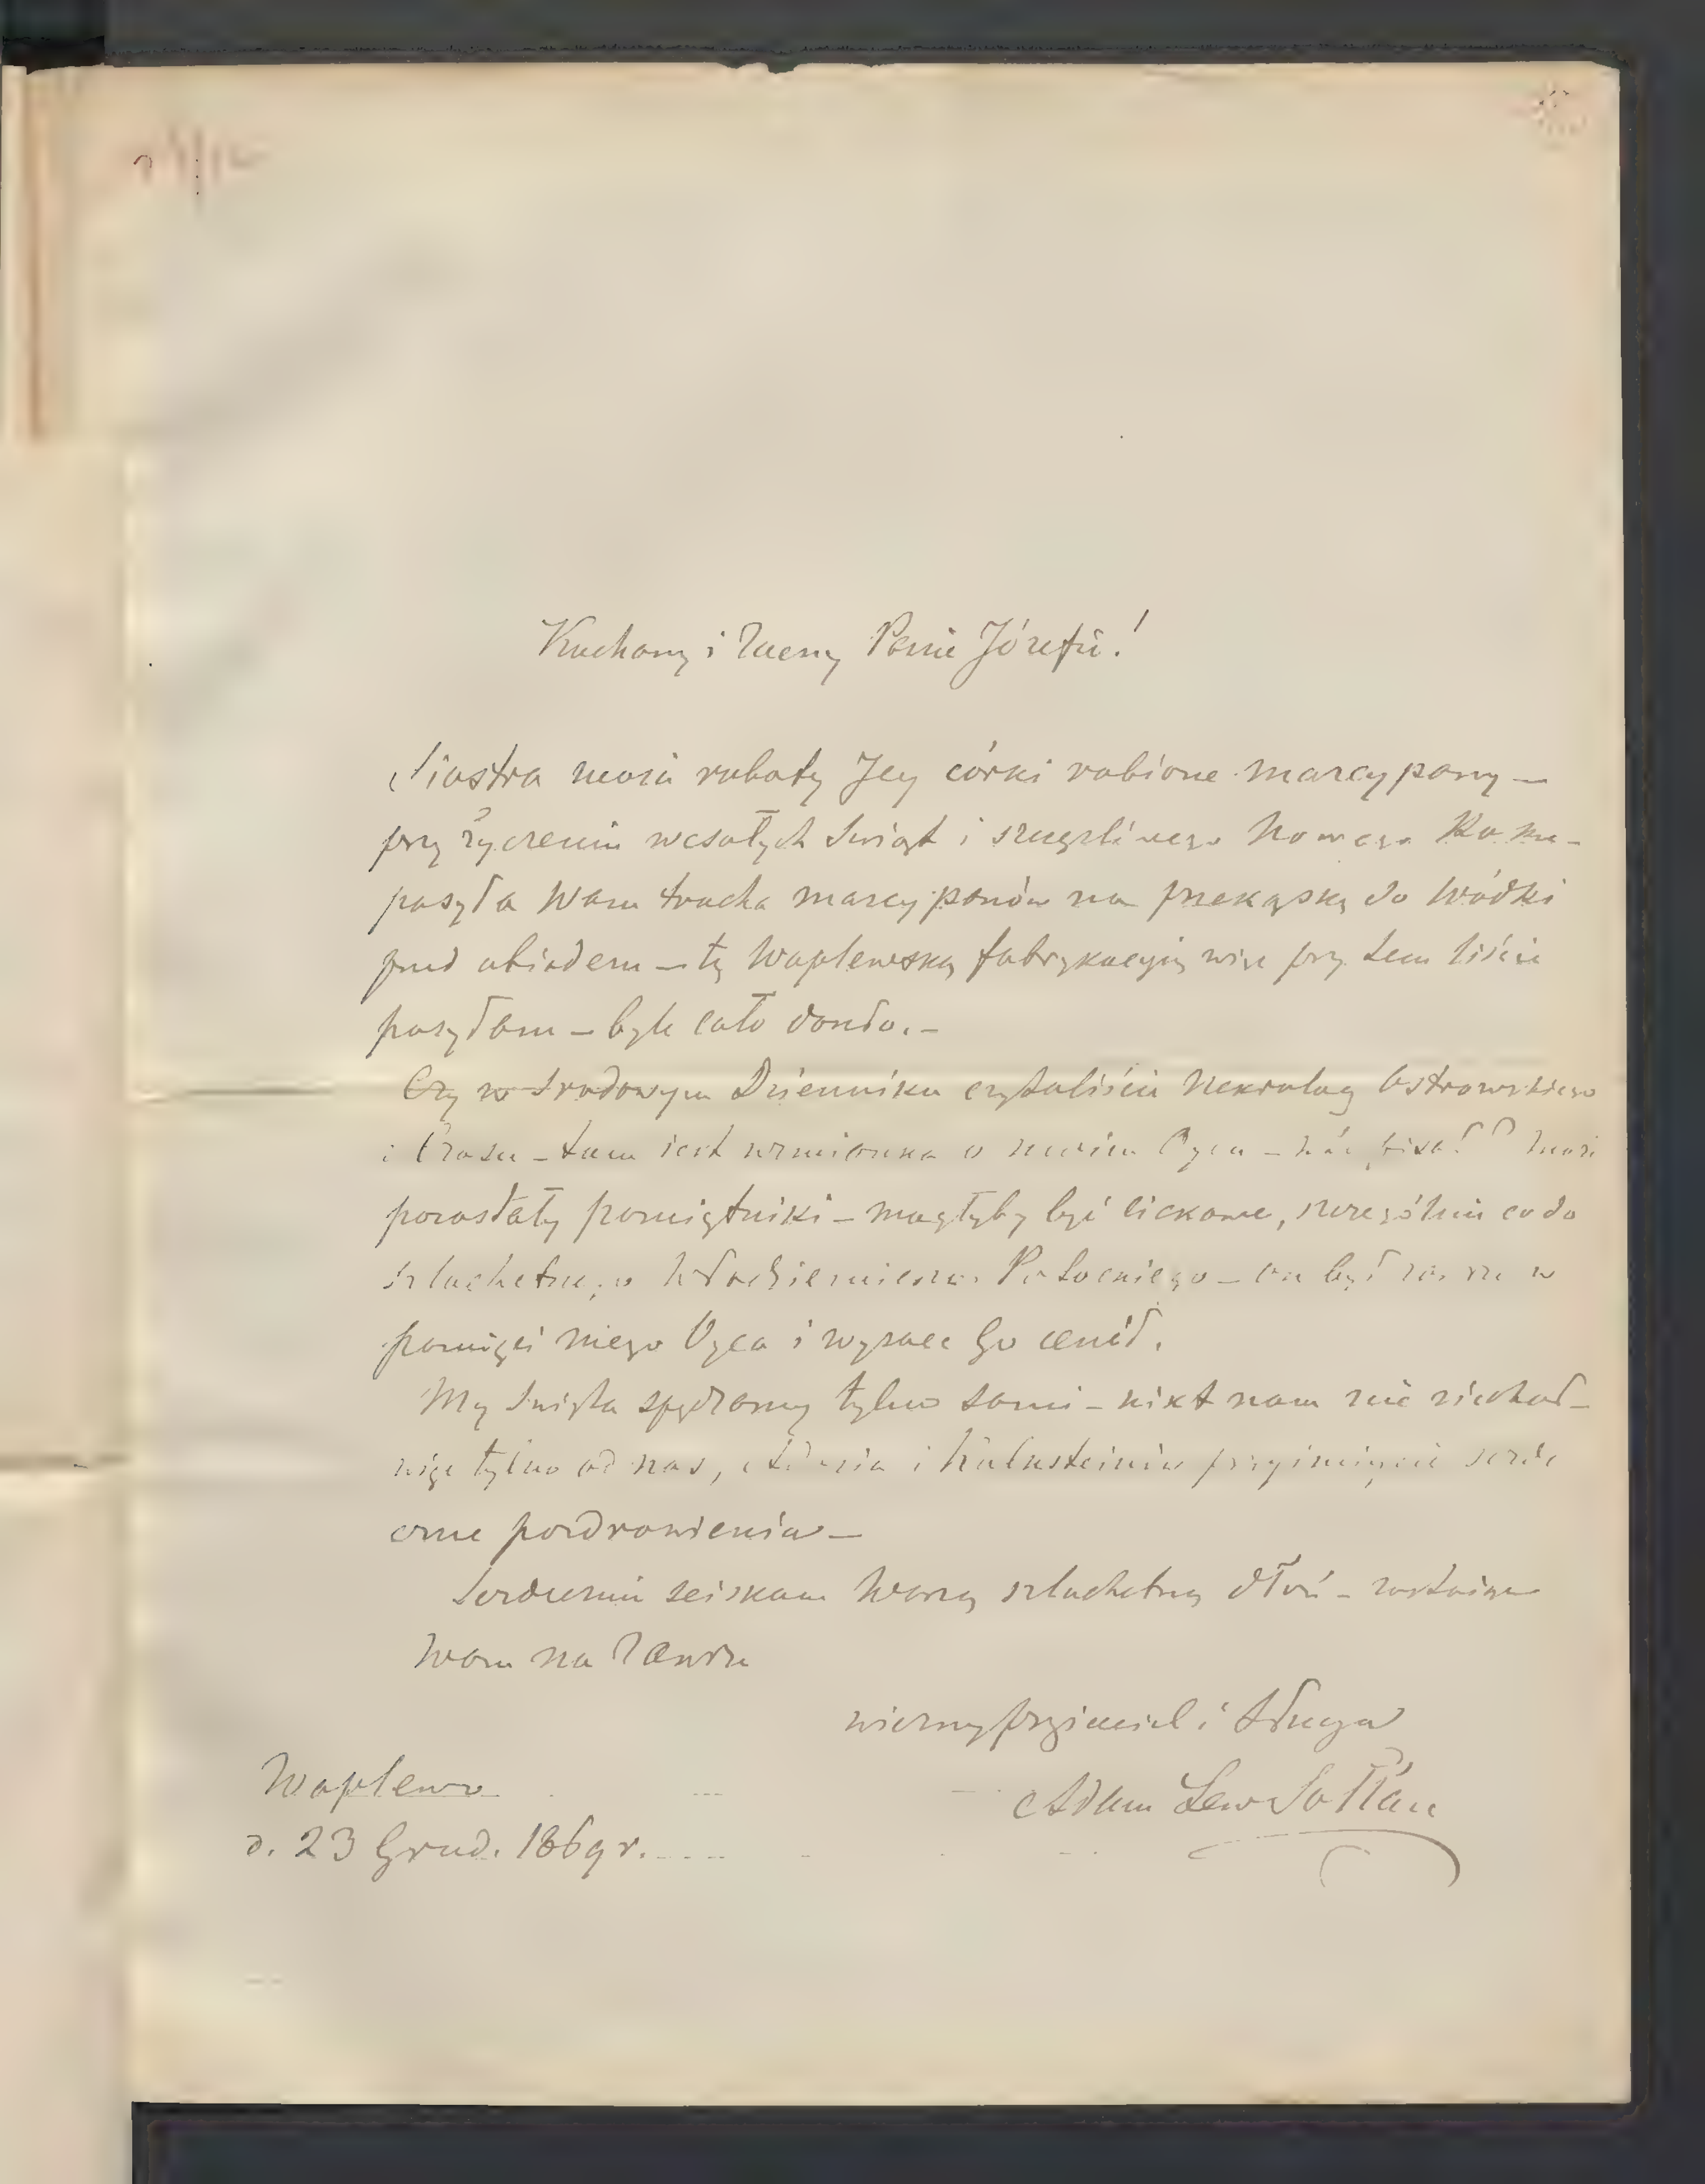 Kochany i Zacny Panie Józefie!
Siostra moia roboty Jey córki robione marcypany —
przy życzeniu wesołych Swiąt i szczęśliwego Nowego Roku -
posyła Wam trocha marcypanów na przekąskę do Wódki
przed obiadem — tę Waplewską fabrykacyią więc przy tem liście
posyłam — byle cało doszło. -
Czy w Srodowym Dzienniku czytaliście Nekrolog Ostrowskiego
i Czasu - tam iest wzmianka o moim Oycu - któż pisał? Może
pozostały pamiętniki — mogłyby być ciekawe, szczególnie co do
szlachetnego Włodzimierza Potockiego — on był zawsze w
pamięci mego Oyca i wysoce Go cenił.
My Swięta spędzamy tylko sami - nikt nam nie ziechał -
więc tylko od nas, i przyimiycie serde
czne pozdrowienia —
Serdecznie sciskam Waszą szlachetną dłoń - zostaiąc
Wam na Zawsze
wierny przyiaciel i Sługa
Adam Lew Sołtan
Waplewo
d. 23 Grud. 1869 r.